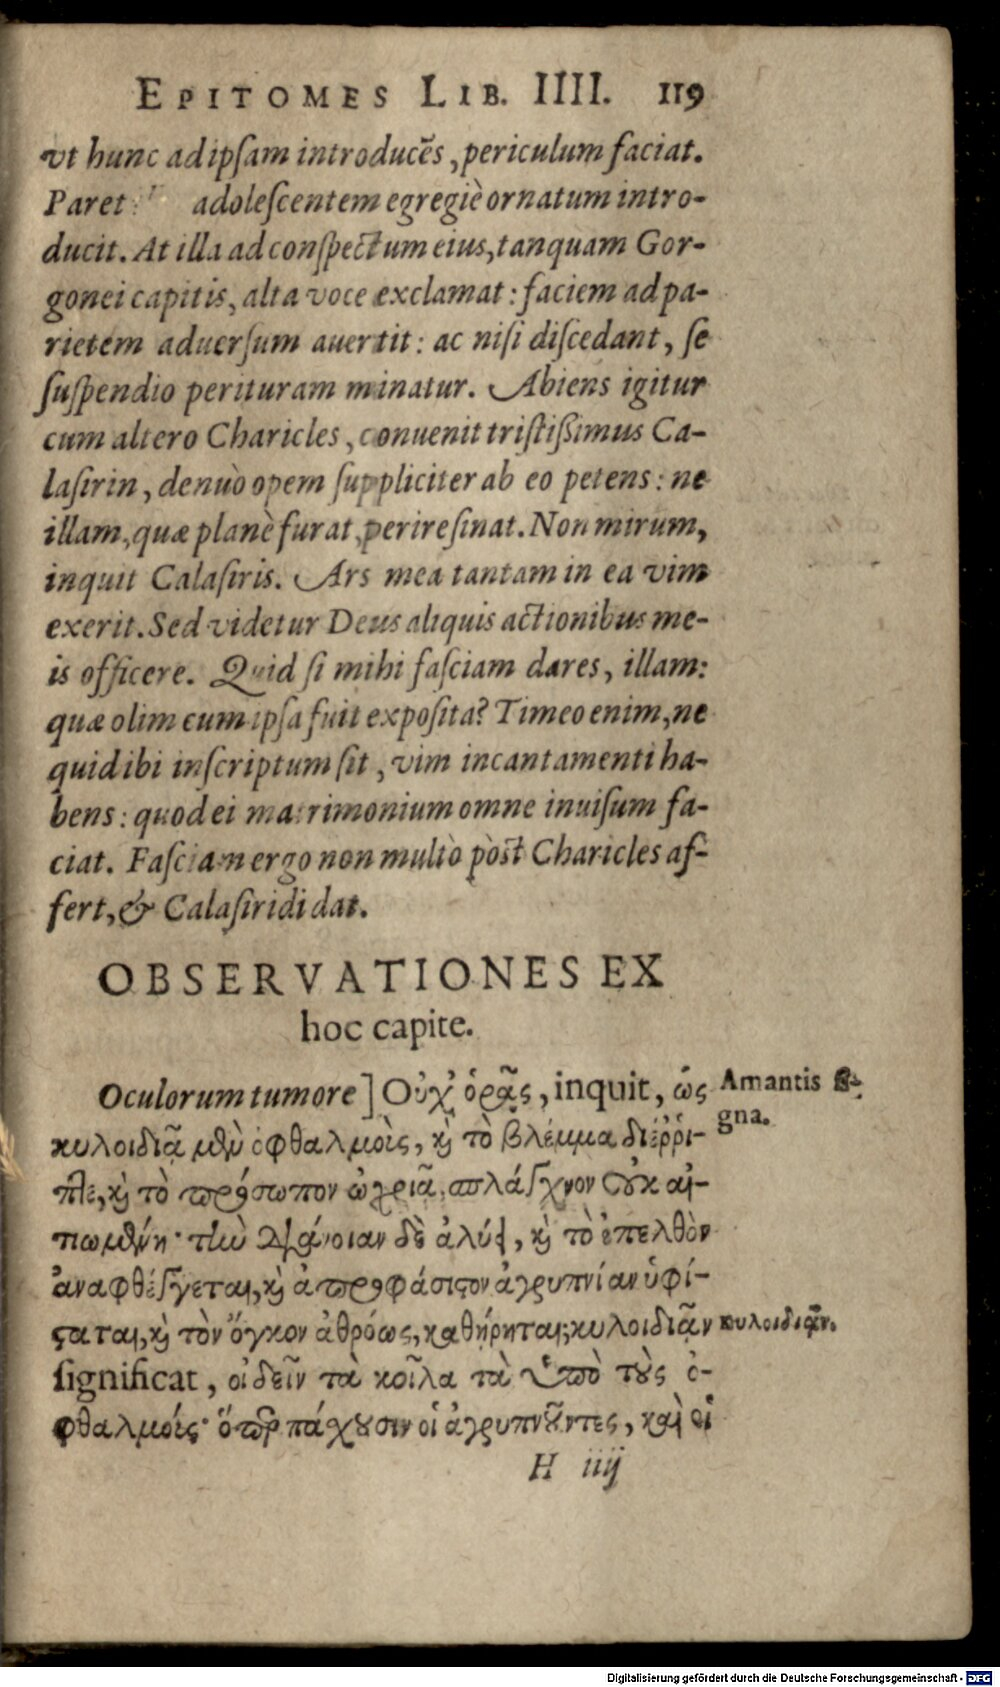 EPITOMES LIB. IIII. 119
vt hunc ad ipſam introducẽs, periculum faciat.
Paret adoleſcentem egregiè ornatum intro-
ducit. At illa ad conſpectum eius, tanquam Gor-
gonei capitis, alta voce exclamat: faciem ad pa-
rietem aduerſum auertit: ac niſi diſcedant, ſe
ſuſpendio perituram minatur. Abiens igitur
cum altero Charicles, conuenit triſtißimus Ca-
laſirin, denuò opem ſuppliciter ab eo petens: ne
illam, quæ planè furat, perire ſinat. Non mirum,
inquit Calaſiris. Ars mea tantam in ea vim
exerit. Sed videtur Deus aliquis actionibus me-
is officere. Quid ſi mihi faſciam dares, illam:
quæ olim cum ipſa fuit expoſita? Timeo enim, ne
quid ibi inſcriptum ſit, vim incantamenti ha-
bens: quod ei matrimonium omne inuiſum fa-
ciat. Faſciam ergo non multò pòſt Charicles af-
fert, & Calaſiridi dat.
OBSERVATIONES EX
hoc capite.
Oculorum tumore] Οὐχ ὁρᾷς, inquit, ὡς
κυλοιδιᾷ μὲν ὀφθαλμοὶς, καὶ τὸ βλέμμα διέῤῥι-
πτε, καὶ τὸ πρόσωπον ὠχριᾷ, σπλάγχνον οὐκ αἰ-
τιωμένη· τὴν διάνοιαν δὲ ἀλύει, καὶ τὸ ἐπελθὸν
ἀναφθέγγεται, καὶ ἀπροφάσιστον ἀγρυπνίαν ὑφί-
σταται, καὶ τὸν ὄγκον ἀθρόως, καθῄρηται; κυλοιδιᾷν
ſignificat, οἰδεῖν τὰ κοῖλα τὰ ὑπὸ τοὺς ὀ-
φθαλμούς· ὅπερ πάχουσιν οἱ ἀγρυπνοῦντες, καὶ οἱ
H iiij
Amantis ſi-
gna.
κυλοιδιᾷν.
Digitalisierung gefördert durch die Deutsche Forschungsgemeinschaft - DFG